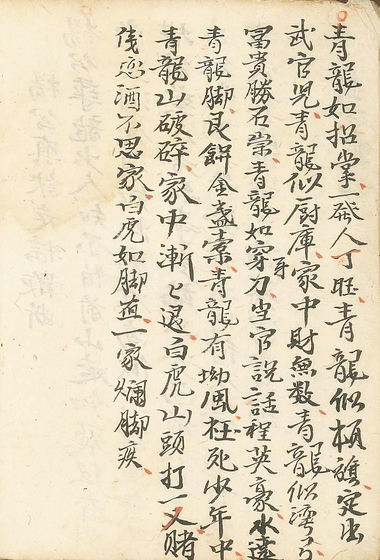 青龍如招掌一發人丁旺青龍似槓旗定出
武官児青龍似厨庫家中財無数青龍似湾弓
冨貴勝石崇青龍如穿刀牙当官説話程英豪水遶
青龍脚艮餅金盞槖青龍有坳風枉死少年中
青龍山破碎家中漸〻退白虎山頭打一乂賭
伐恋酒不思家白虎如脚面一家爛脚疾